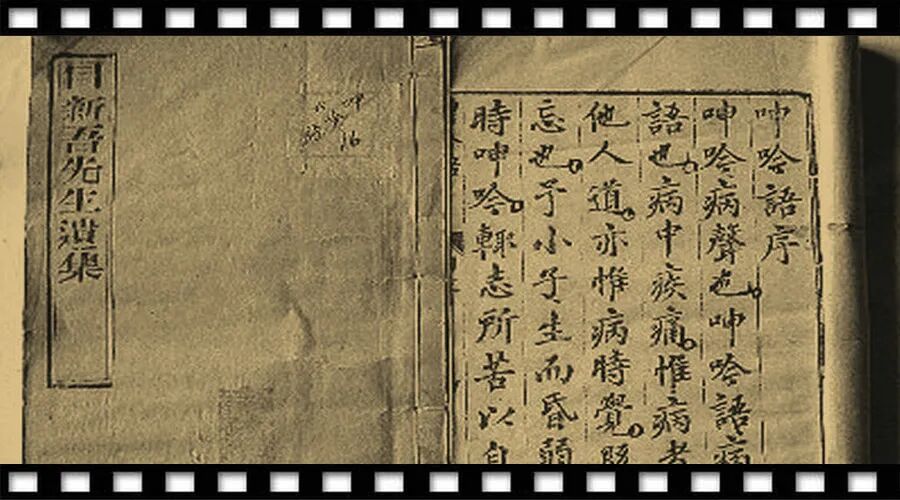 呂新吾先生遺集
呻吟語序
呻吟病聲也。呻吟語病
語也。病中疾痛。惟病者
他人道。亦惟病時覺。既
忘也。予小子生而昏弱
時呻吟。輒志所苦以自